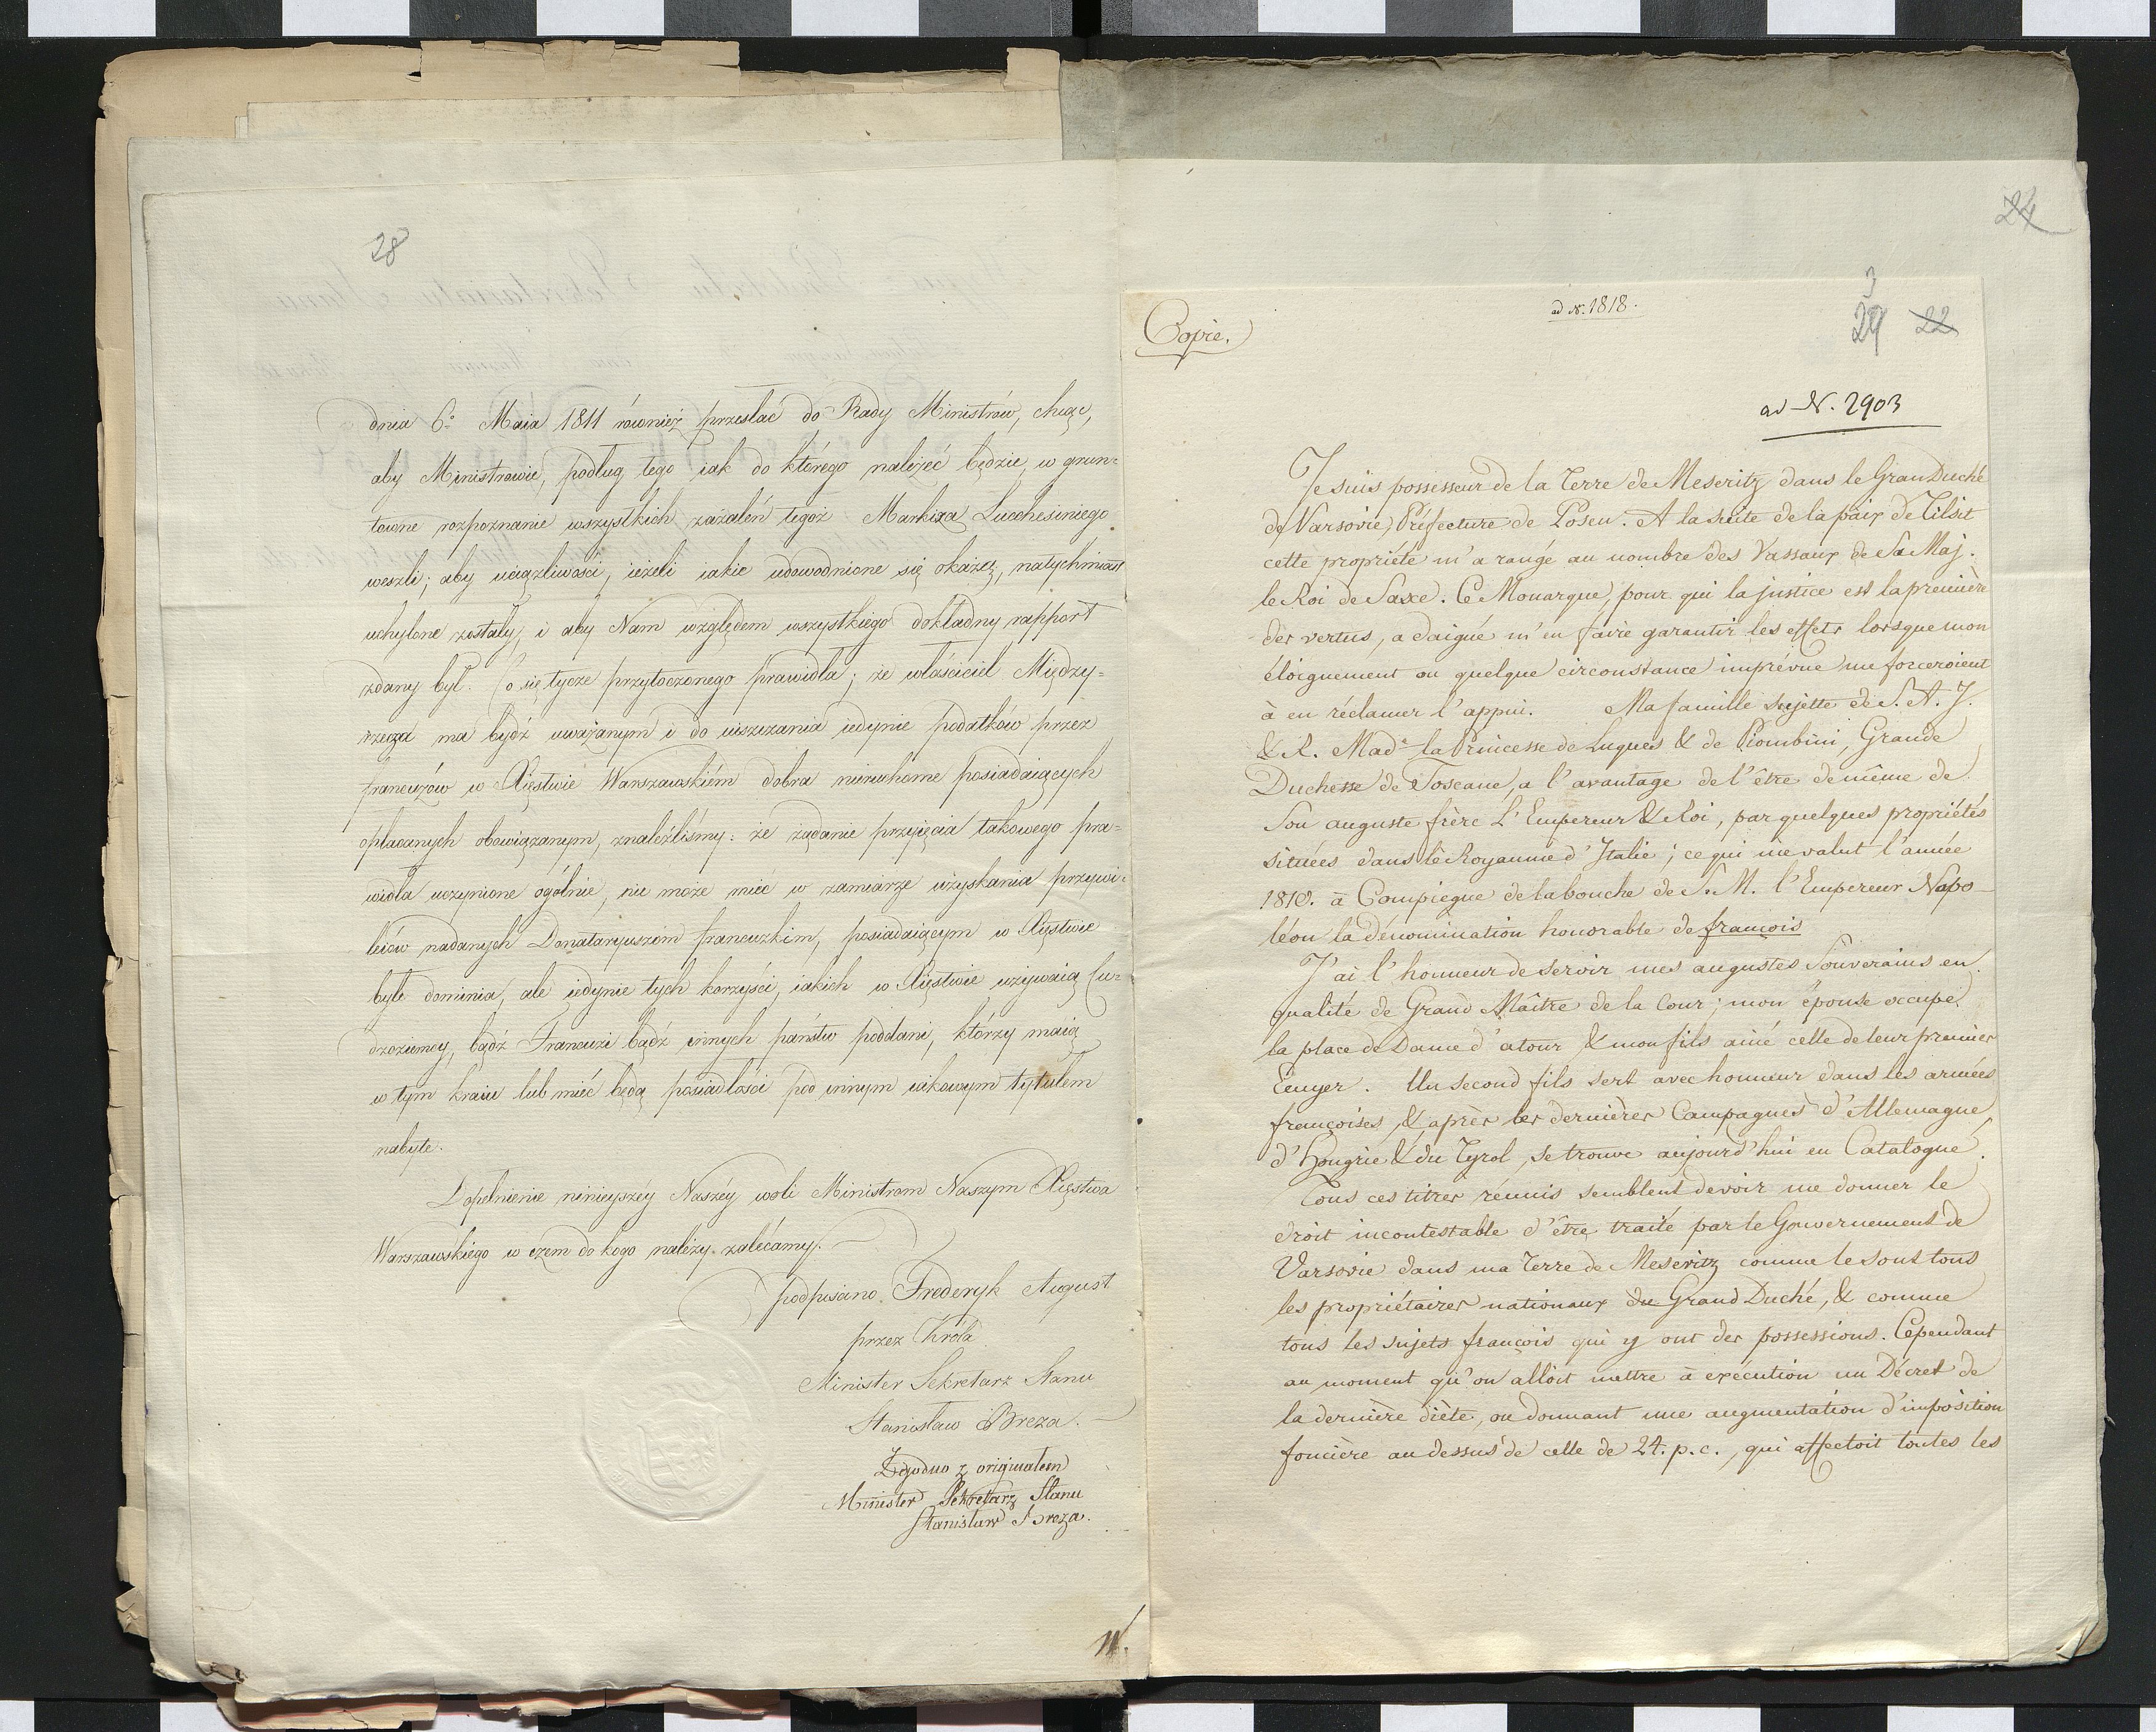 28
dnia 6º Maia 1811 również przesłać do Rady Ministrów, chcąc,
aby Ministrowie, podług tego iak do którego należeć będzie, w grun-
towne rozpoznanie wszystkich zażaleń tegoż Markiza Lucchesiniego
weszli; aby uciążliwości, ieżeli iakie udowodnione się okażą, natychmiast
uchylone zostały, i aby Nam względem wszystkiego dokładny rapport
zdany był. Co się tycze przytoczonego prawidła; że właściciel Między-
rzecza ma bydź uważanym i do uiszczania iedynie podatków przez
francuzów w Xięstwie Warszawskiém dobra nieruchome posiadaiących
opłacanych obowiązanym, znaleźliśmy: że żądanie przyięcia takowego pra-
widła uczynione ogólnie, nie może mieć w zamiarze uzyskania przywi-
leiów nadanych Donataryuszom francuzkim, posiadaiącym w Xięstwie
byłe dominia, ale iedynie tych korzyści, iakich w Xięstwie używaią Cu-
dzoziemcy, bądź Francuzi bądź innych państw poddani, którzy maią
w tym kraiu lub mieć będą posiadłości pod innym iakowym tytułem
nabyte.
Dopełnienie ninieyszéy Naszéy woli Ministrom Naszym Xięstwa
Warszawskiego w czem do kogo należy zalécamy.
podpisano Frederyk August
przez Króla
Minister Sekretarz Stanu
Stanisław Breza.
Zgodno z originałem
Minister Sekretarz Stanu
Stanisław Breza.
24
3
29 22
ad N. 1818.
Copie.
ad N. 2903
Je suis possesseur de la Terre de Meseritz dans le Gran Duché
de Varsovie, Préfecture de Posen. A la suite de la paix de Tilsit
cette propriété m'a rangé au nombre des Vassaux de Sa Maj.
le Roi de Saxe. Ce Monarque, pour qui la justice est la première
des vertus, a daigné m'en faire garantir les effets lorsque mon
éloignement ou quelque circonstance imprévue me forceroient
à en réclamer l'appui. Ma famille sujette de S. A. I.
& R. Made la Princesse de Luques & de Piombini, Grande
Duchesse de Toscane, a l'avantage de l'être de même de
Son auguste frère L'Empereur & Roi, par quelques propriétés
situées dans le Royaume d'Italie; ce qui me valut l'année
1810. à Compiegne de la bouche de S. M. l'Empereur Napo-
léon la dénomination honorable de françois
J'ai l'honneur de servir mes augustes Souverains en
qualité de Grand Maître de la Cour; mon épouse occupe
la place de Dame d'atour & mon fils ainé celle de leur premier
Ecuyer. Un second fils sert avec honneur dans les armées
françoises, & après les dernières Campagnes d'Allemagne,
d'Hongrie & du Tyrol, se trouve aujourd'hui en Catalogne.
Tous ces titres réunis semblent devoir me donner le
droit incontestable d'être traité par le Gouvernement de
Varsovie dans ma Terre de Meseritz comme le sont tous
les propriétaires nationaux du Grand Duché, & comme
tous les sujets françois qui y ont des possessions. Cependant
au moment qu'on alloit mettre à exécution un Décret de
la dernière diète, ordonnant une augmentation d'imposition
foncière au dessus de celle de 24. p. c., qui affectoit toutes les